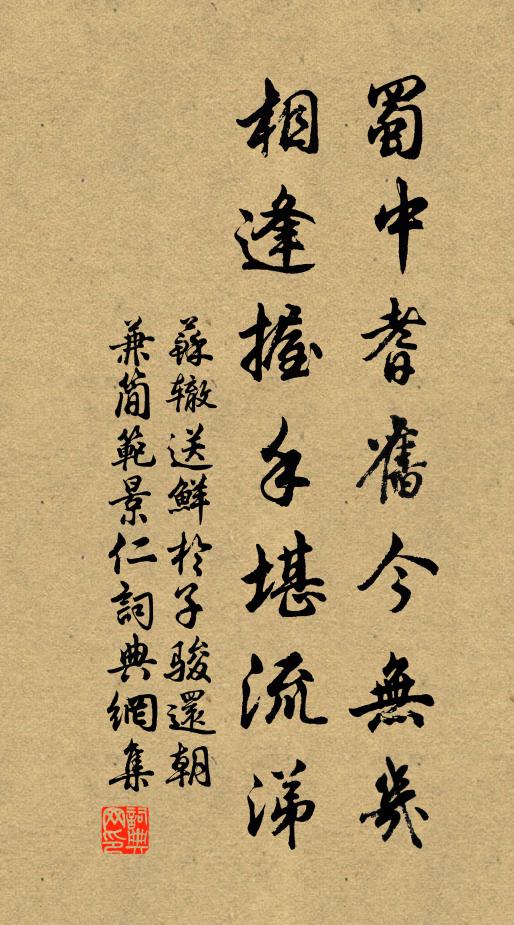 蜀中耆舊今無幾
相逢握手堪流涕
蘇辙送鮮於子駿還朝
兼簡範景仁詞典網集
詞典网印